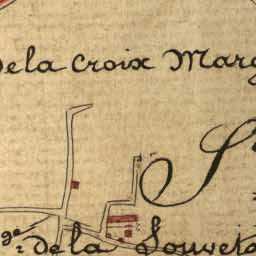 de la Croix Marg
S
ge de la Louvet